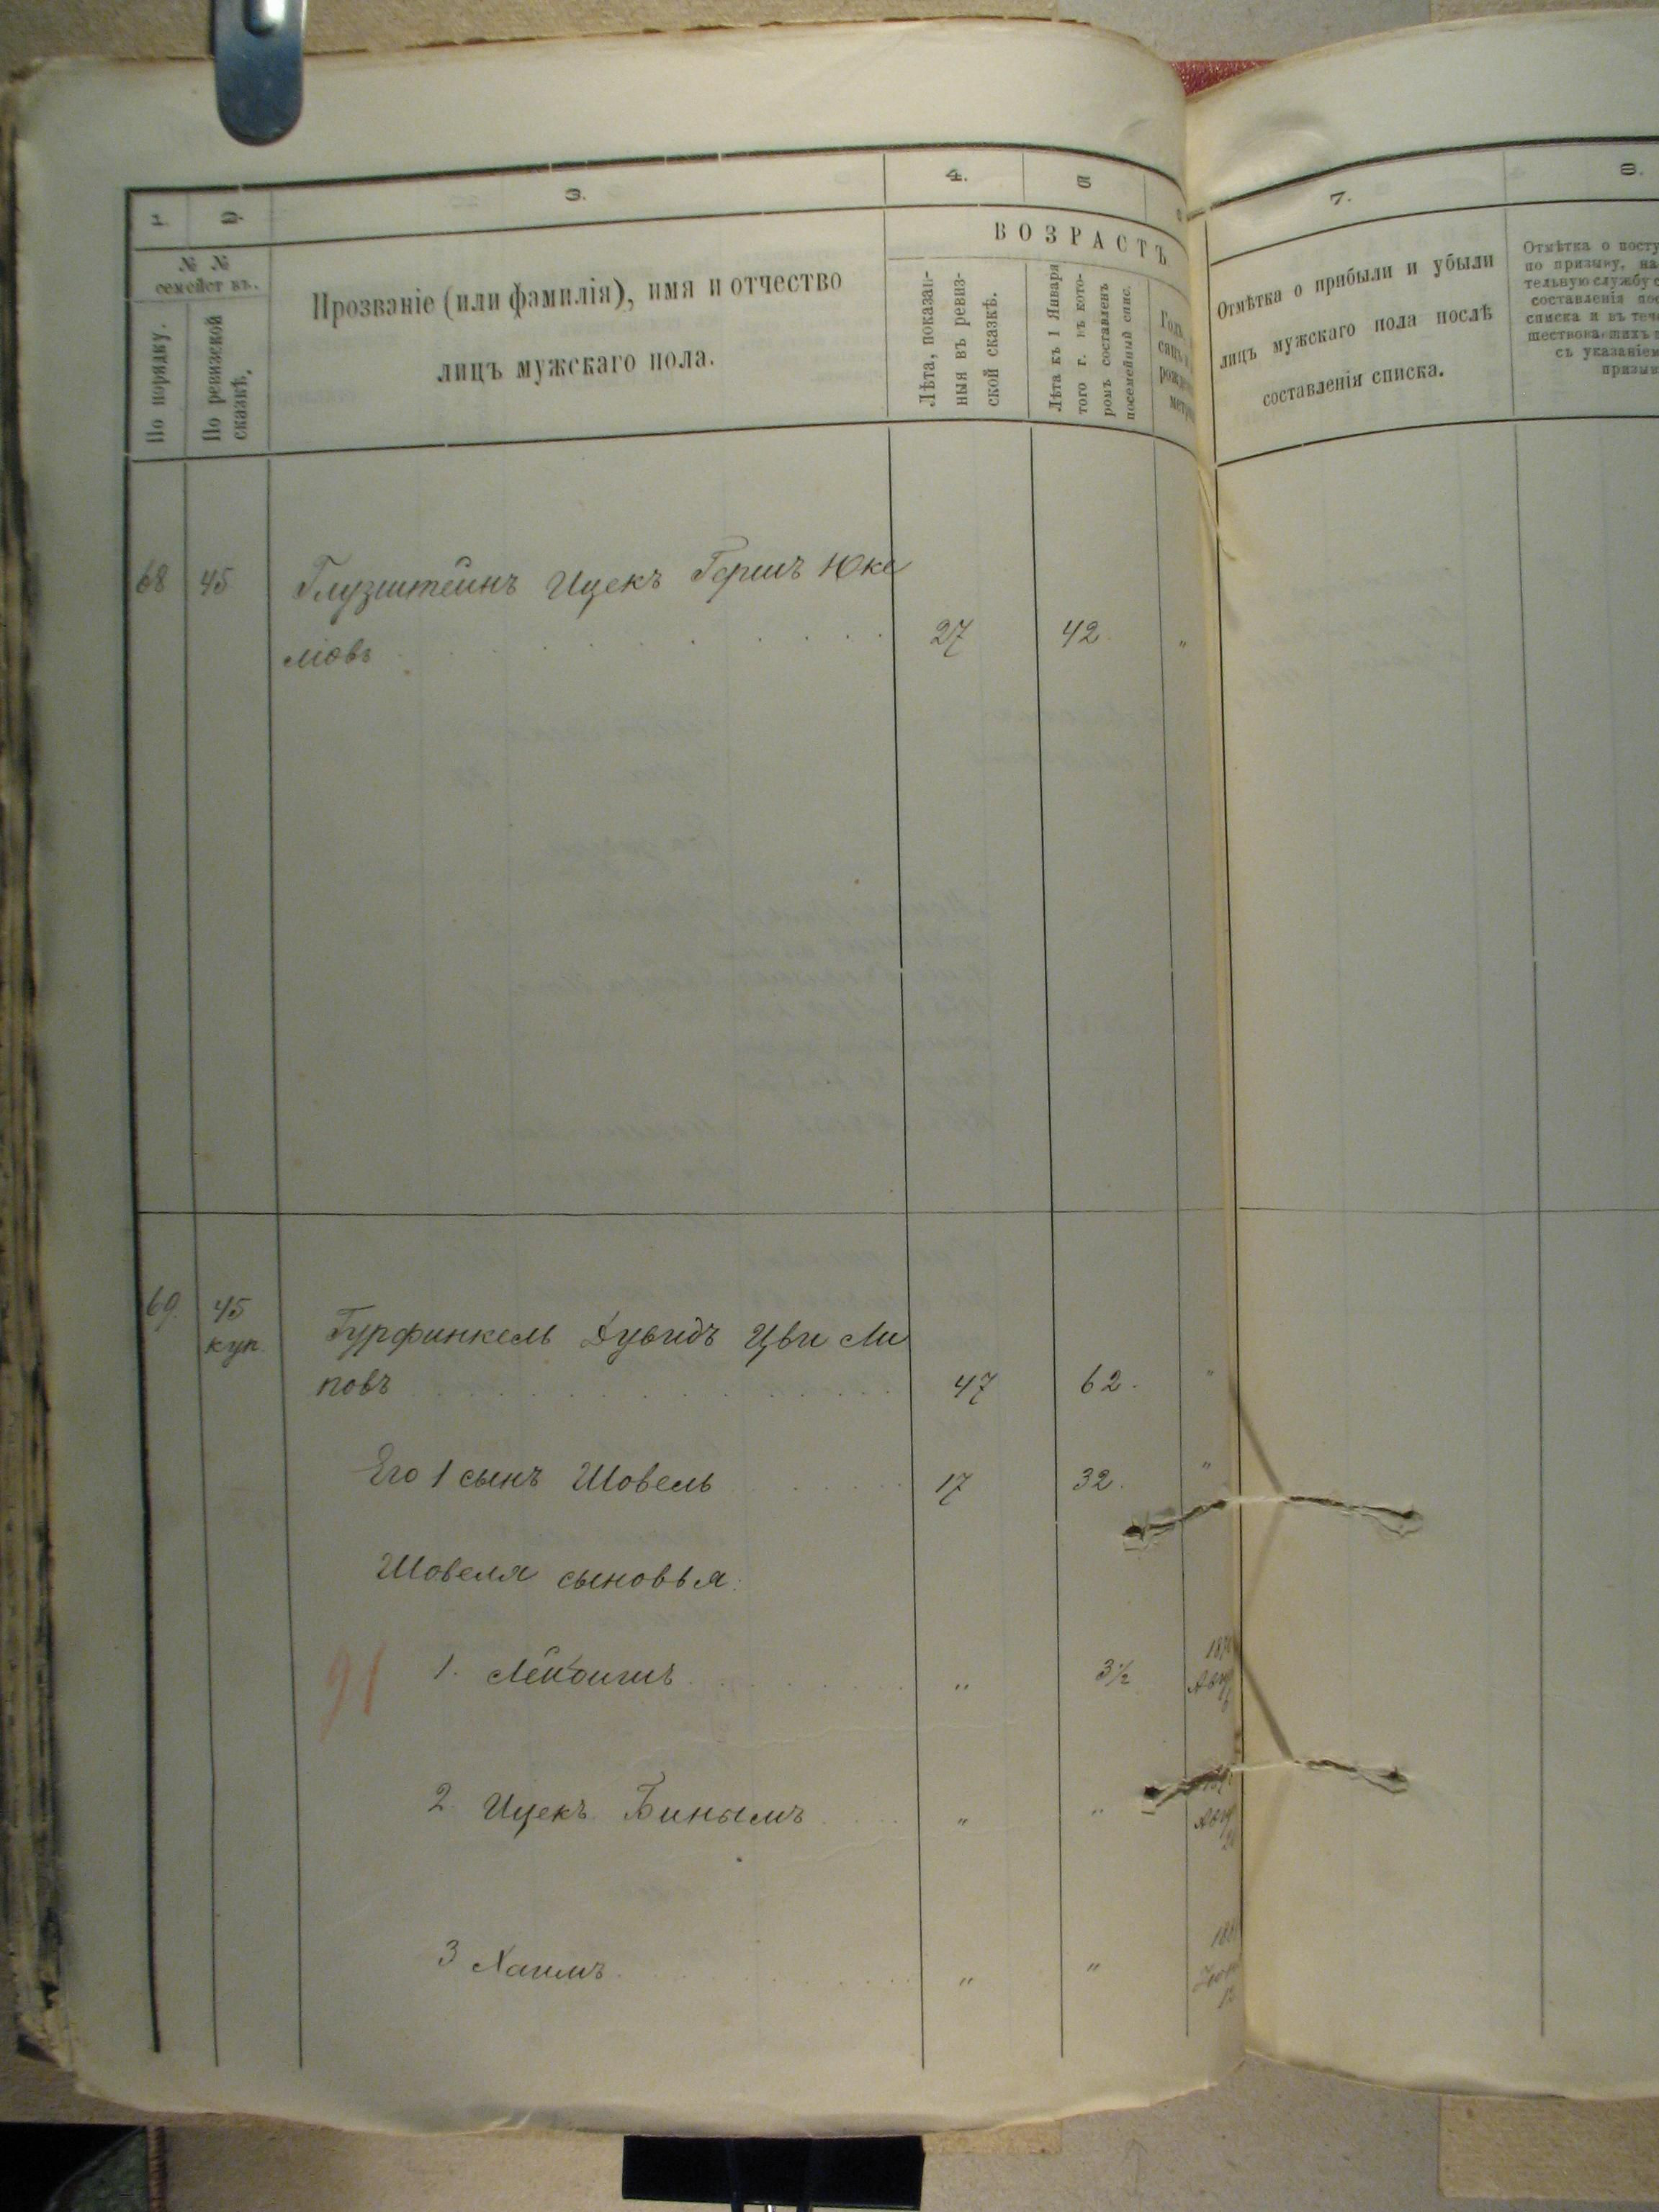 1. 2. 3. 4. 5 7. 8.
№ № семействъ.
По порядку.
По ревизской сказкѣ.
Прозваніе (или фамилія), имя и отчество
лицъ мужскаго пола.
ВОЗРАСТЪ
Лѣта, показан-
ныя въ ревиз-
ской сказкѣ.
Лѣта къ 1 Января
того г. въ кото-
ромъ составленъ
посемейный спис.
Отмѣтка о прибыли и убыли
лицъ мужскаго пола послѣ
составленія списка.
Отмѣтка о посту
по призыву, на
тельную службу с
составленія пос
списка и въ тече
шествовавшихъ
съ указаніем
призыв
68 45 Глузштейнъ Ицекъ Гершъ Юке
ліовъ 27 42. "
69. 45 куп. Гурфинкель Дувидъ Цви Ли
повъ 47 62. "
Его 1 сынъ Шовель 17 32. "
Шовеля сыновья:
91 1. " 3½ Авг
2. Ицекъ Бинымъ " " Авг
3 Хаимъ " "